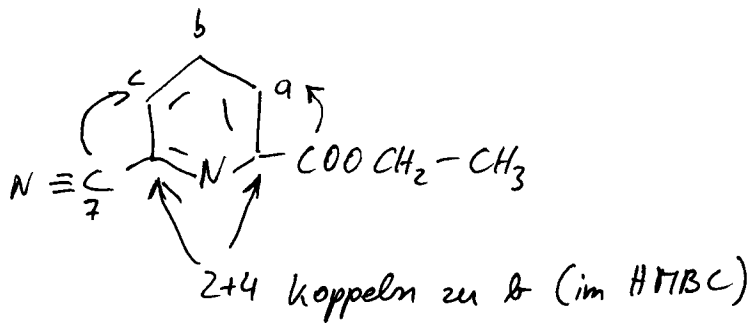 b
c
a
N
COOCH₂-CH₃
N≡C
7
2+4 koppeln zu b (im HMBC)